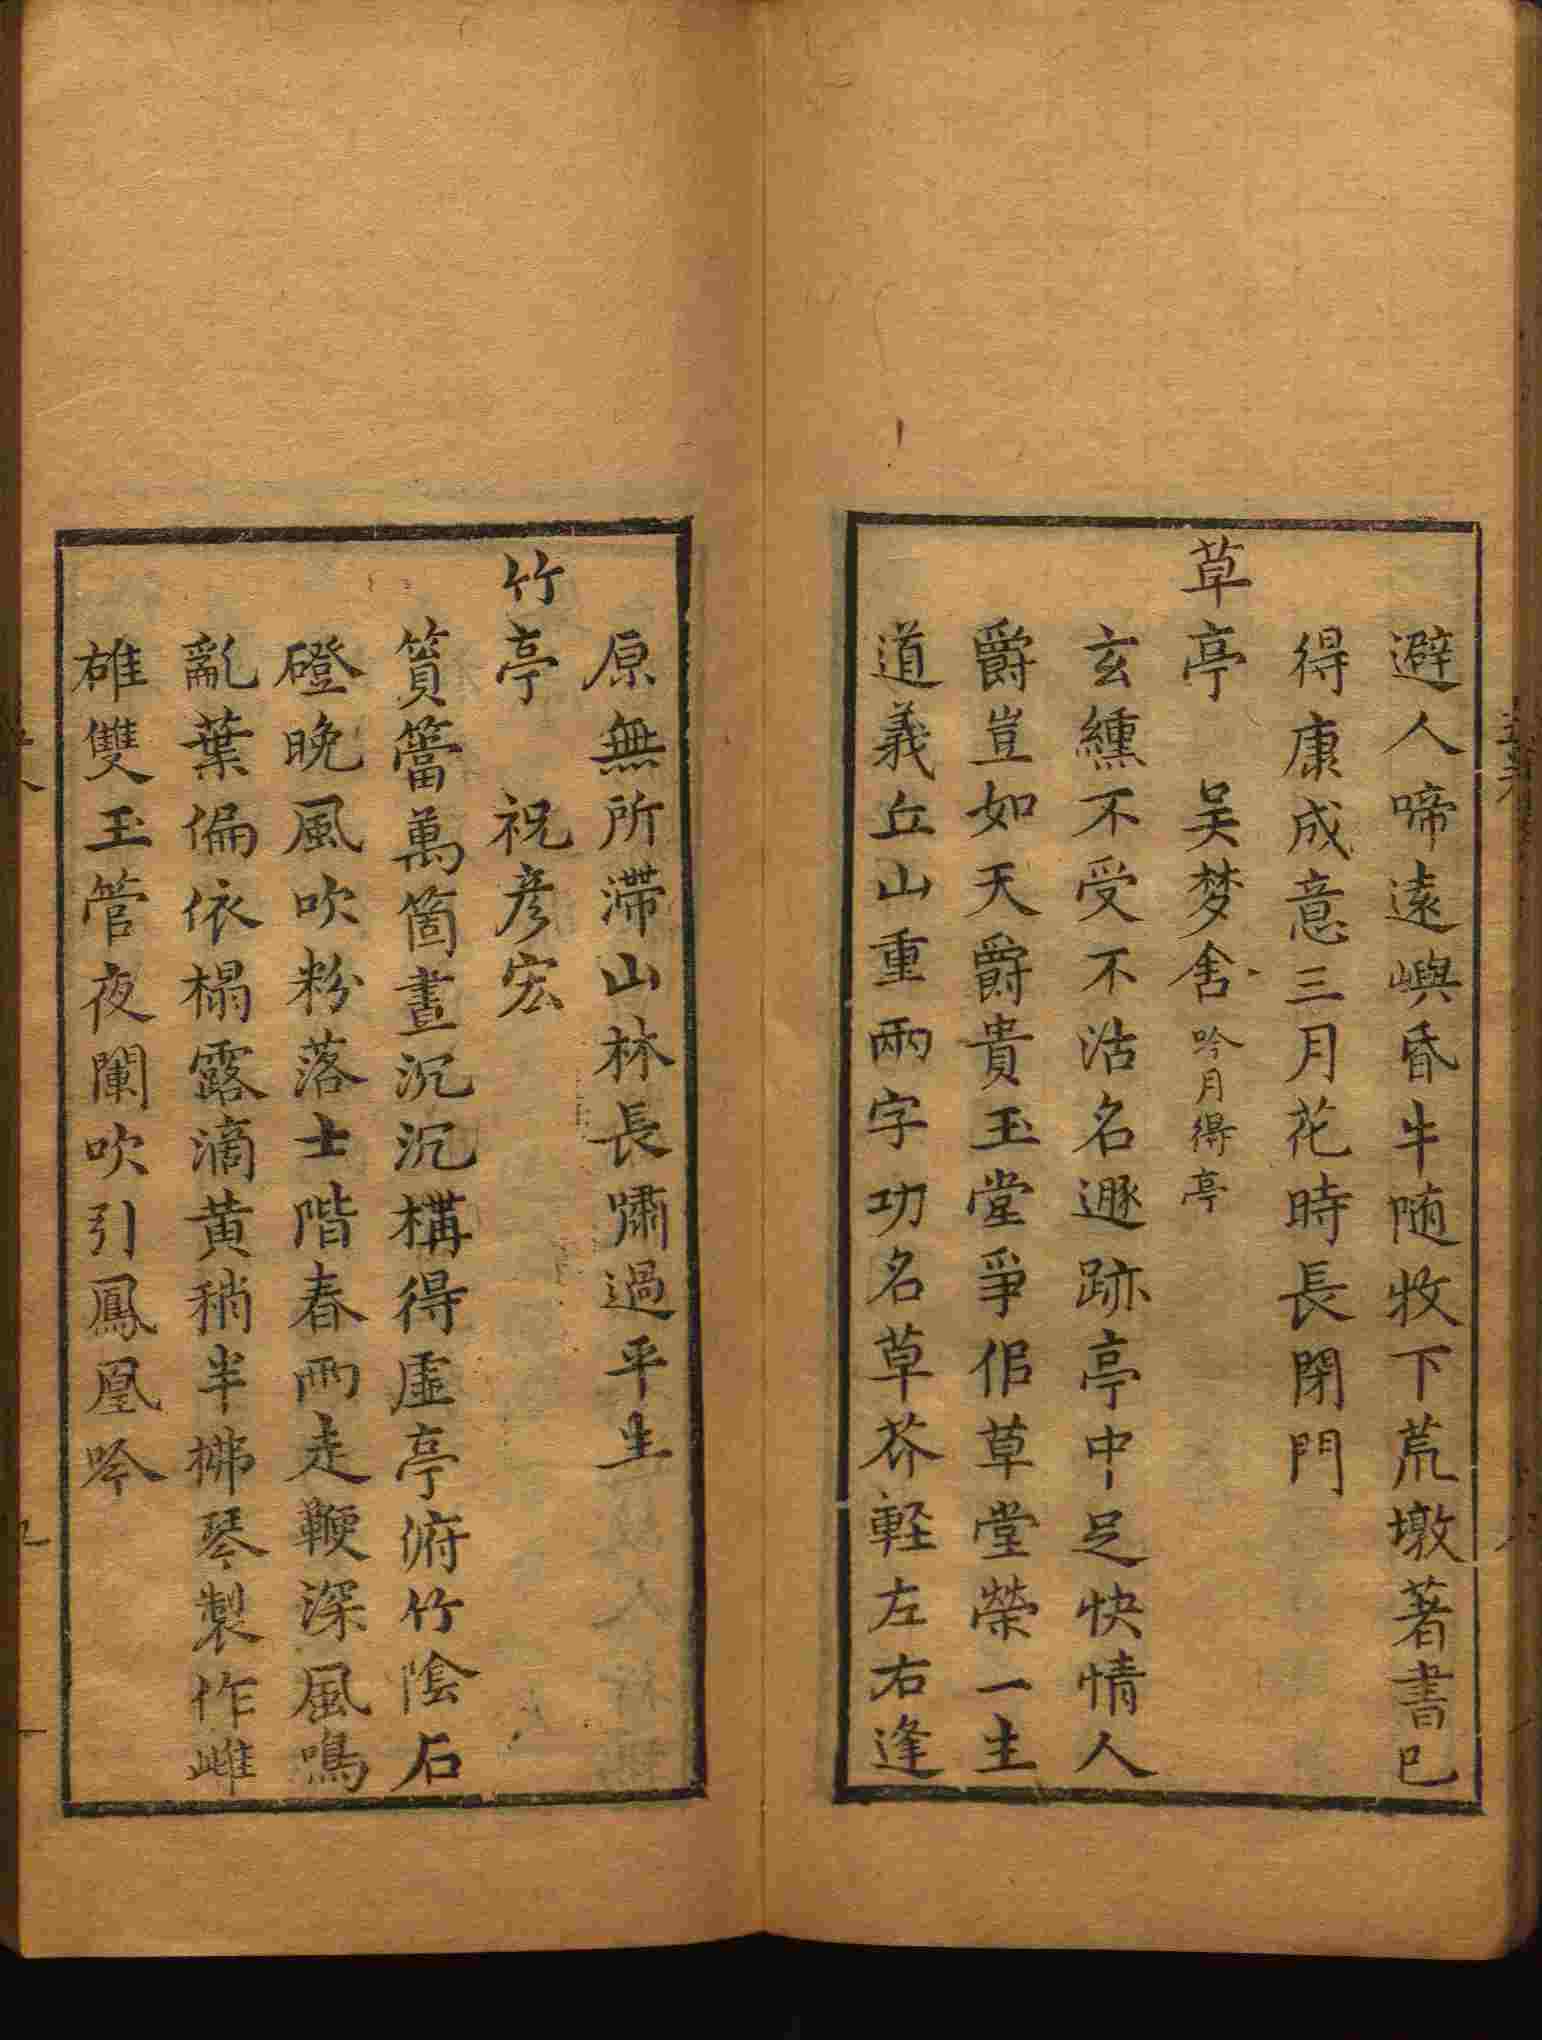 避人啼遠嶼昏牛随牧下荒墩著書已
得康成意三月花時長閉門
草亭　吴梦舍吟月得亭
玄纁不受不沽名遯跡亭中足快情人
爵豈如天爵貴玉堂爭侣草堂榮一生
道義丘山重兩字功名草芥軽左右逢
原無所滯山林長嘯過平生
竹亭　祝彦宏
篔簹萬箇晝沉沉構得虚亭俯竹陰石
磴晚風吹粉落士階春雨走鞭深風鳴
亂葉偏依榻露滴黄稍半拂琴製作雌
雄雙玉管夜闌吹引鳳凰吟